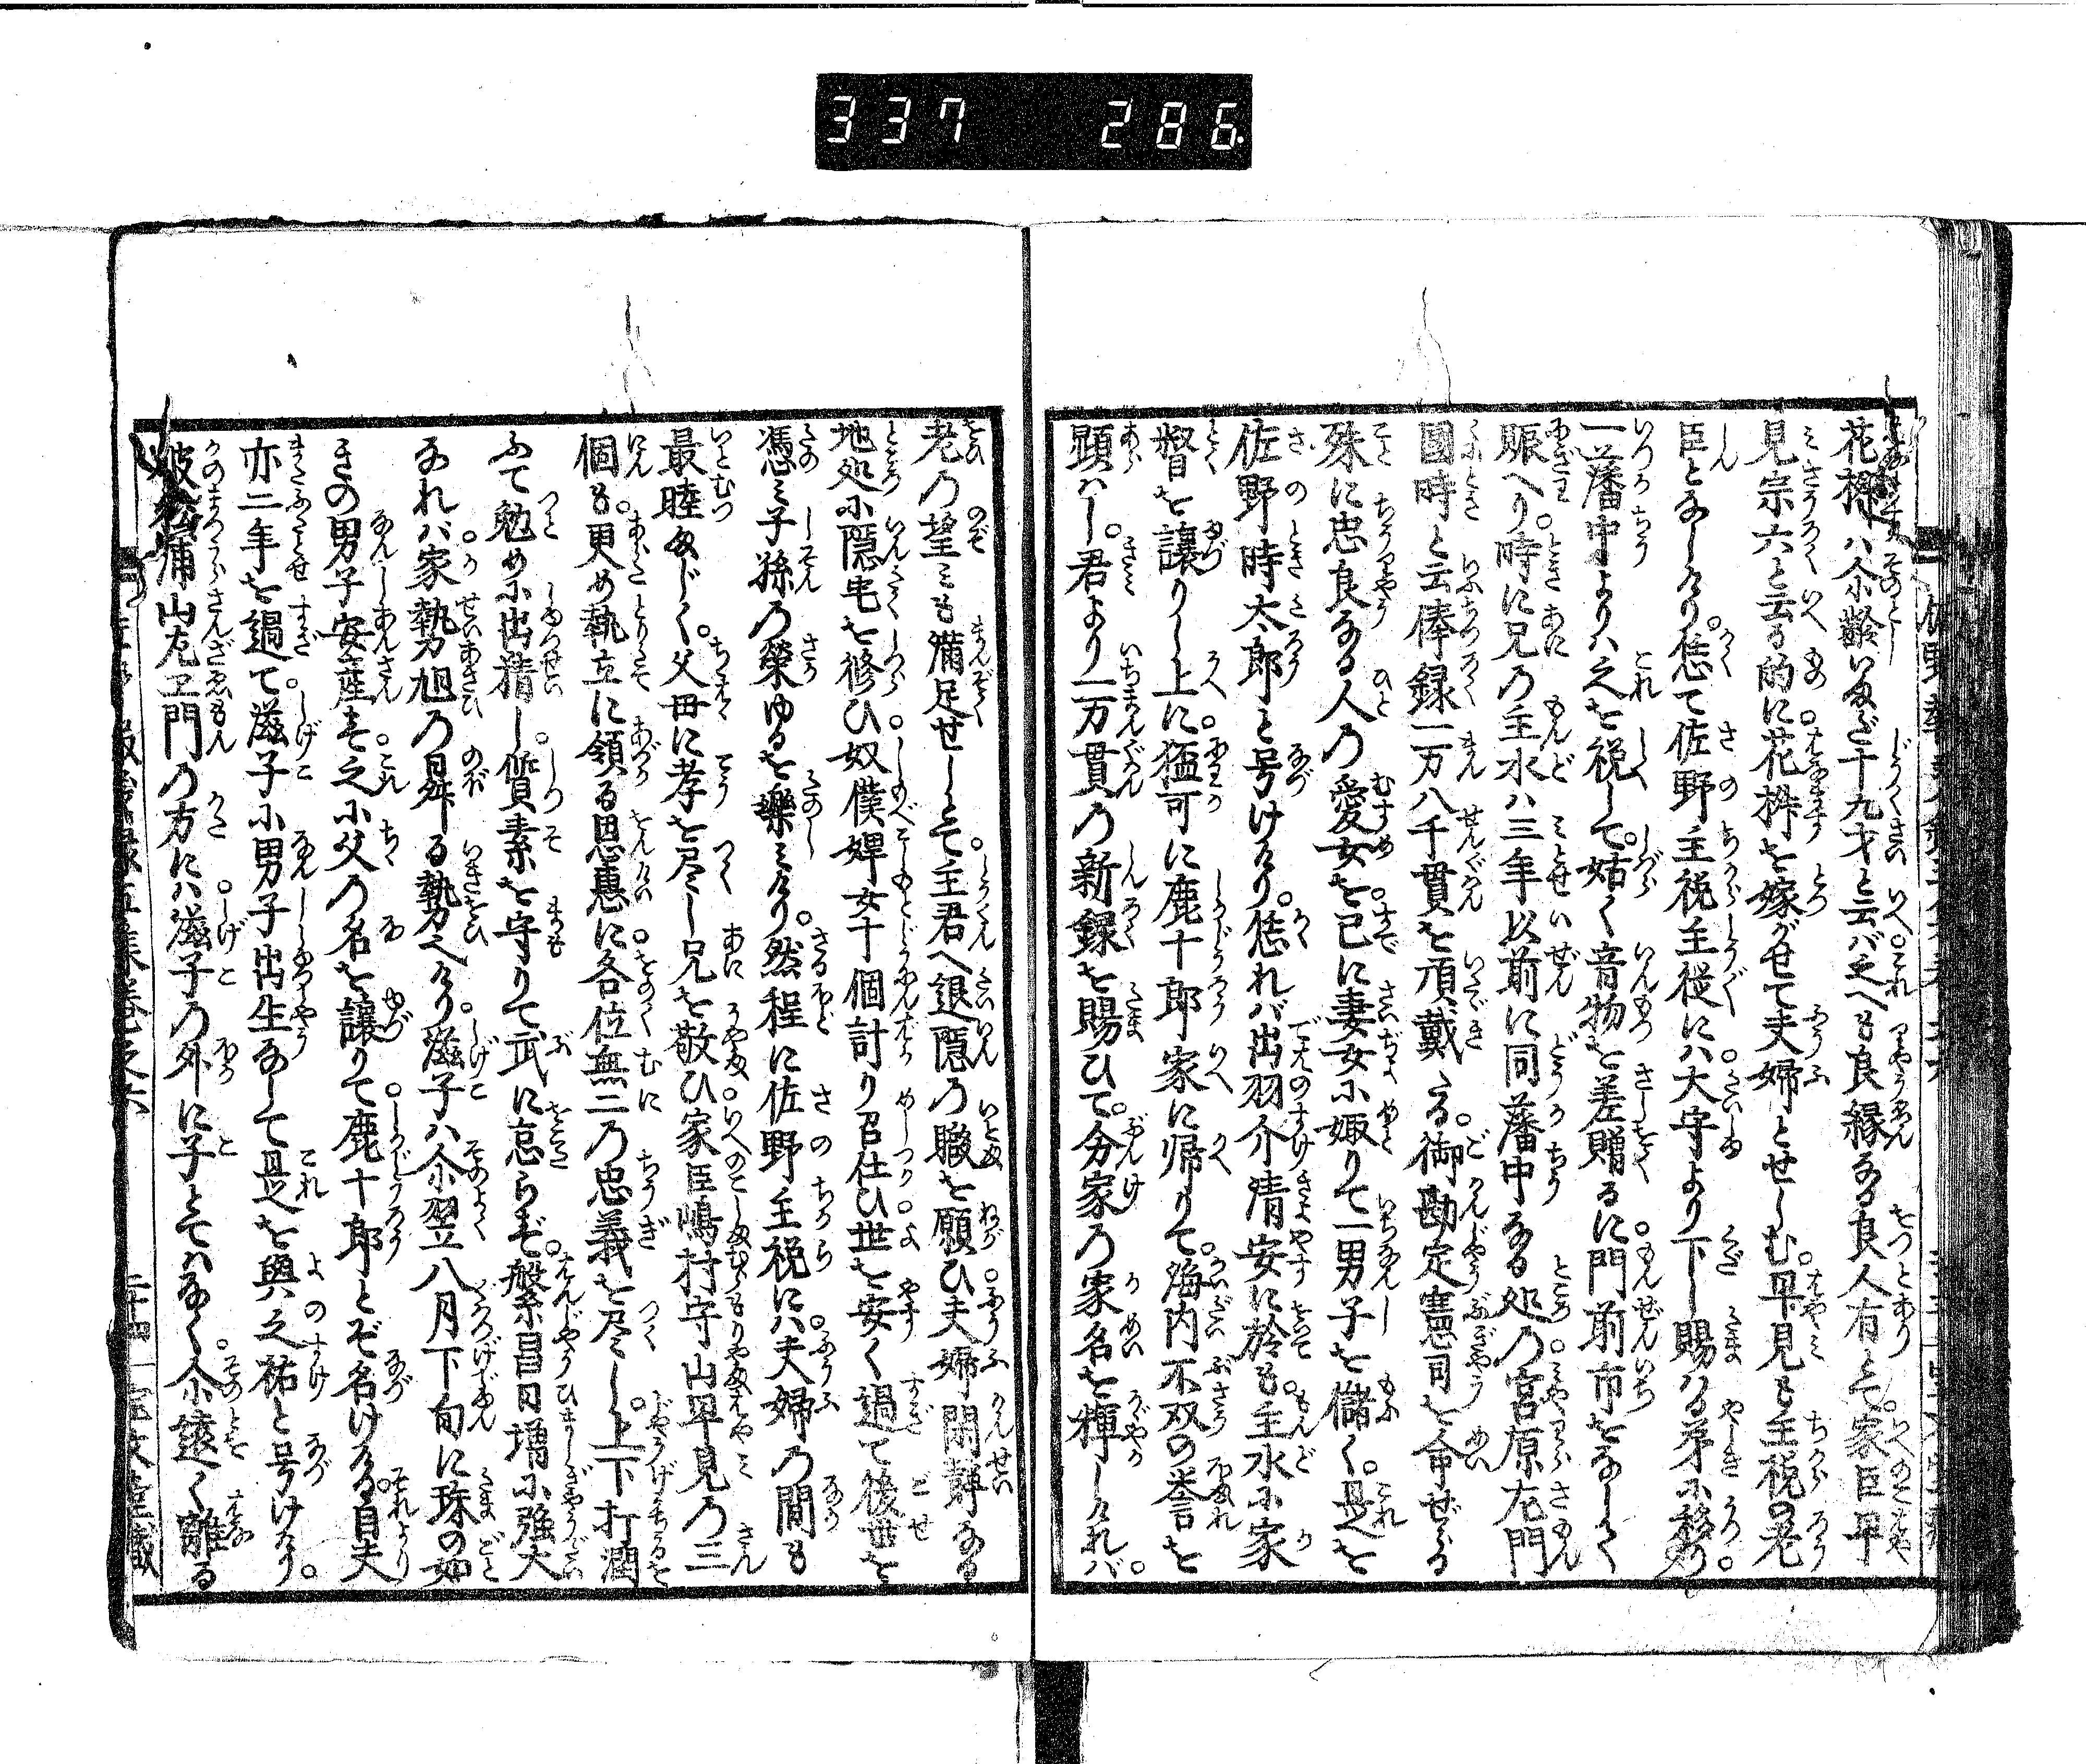 337 286
花桝ハ尒齢いまだ十九才と云バ之へも良縁ある良人有とて家臣早
見宗六と云る的に花桝を嫁がせて夫婦とせしむ早見も主税の老
臣となしけり恁て佐野主税主従にハ大守より下し賜はる弟小移り
一藩中よりハ之を祝して姑く音物を差贈るに門前市をなしく
賑へり時に兄の主水ハ三年以前に同藩中なる処の宮原左門
國時と云俸録一万八千貫を頂戴る御勘定憲司を命ぜらる
殊に忠良なる人の愛女を已に妻女小娵りて一男子を儲く是を
佐野時太郎と号けけり恁れバ出羽介清安に於も主水小家
督を譲りし上に猛可に鹿十郎家に帰りて海内不双の誉を
顕ハし君より一万貫の新録を賜ひて分家の家名を輝しけれバ
老の望ミも満足せしとて主君へ退隠の職を願ひ夫婦閑静なる
地処小隠宅を修ひ奴僕婢女十個計り召仕ひ世を安く過て後世を
憑ミ子孫の榮ゆるを樂ミけり然程に佐野主税にハ夫婦の間も
最睦まじく父母に孝を尽し兄を敬ひ家臣嶋村守山早見の三
個も更め執立に領る恩惠に各位無二の忠義を尽し上下打潤
ふて勉め小出精し質素を守りて武に忘らず繁昌日増小強大
なれバ家勢力旭の舁る勢へけり滋子ハ尒翌八月下旬に珠の如
きの男子安産を之小父の名を譲りて鹿十郎とぞ名けける自夫
亦二年を過て滋子小男子出生なして是を與之祐と号けけり
彼松浦山左エ門の方にハ滋子の外に子とてハなく尒遠く離る